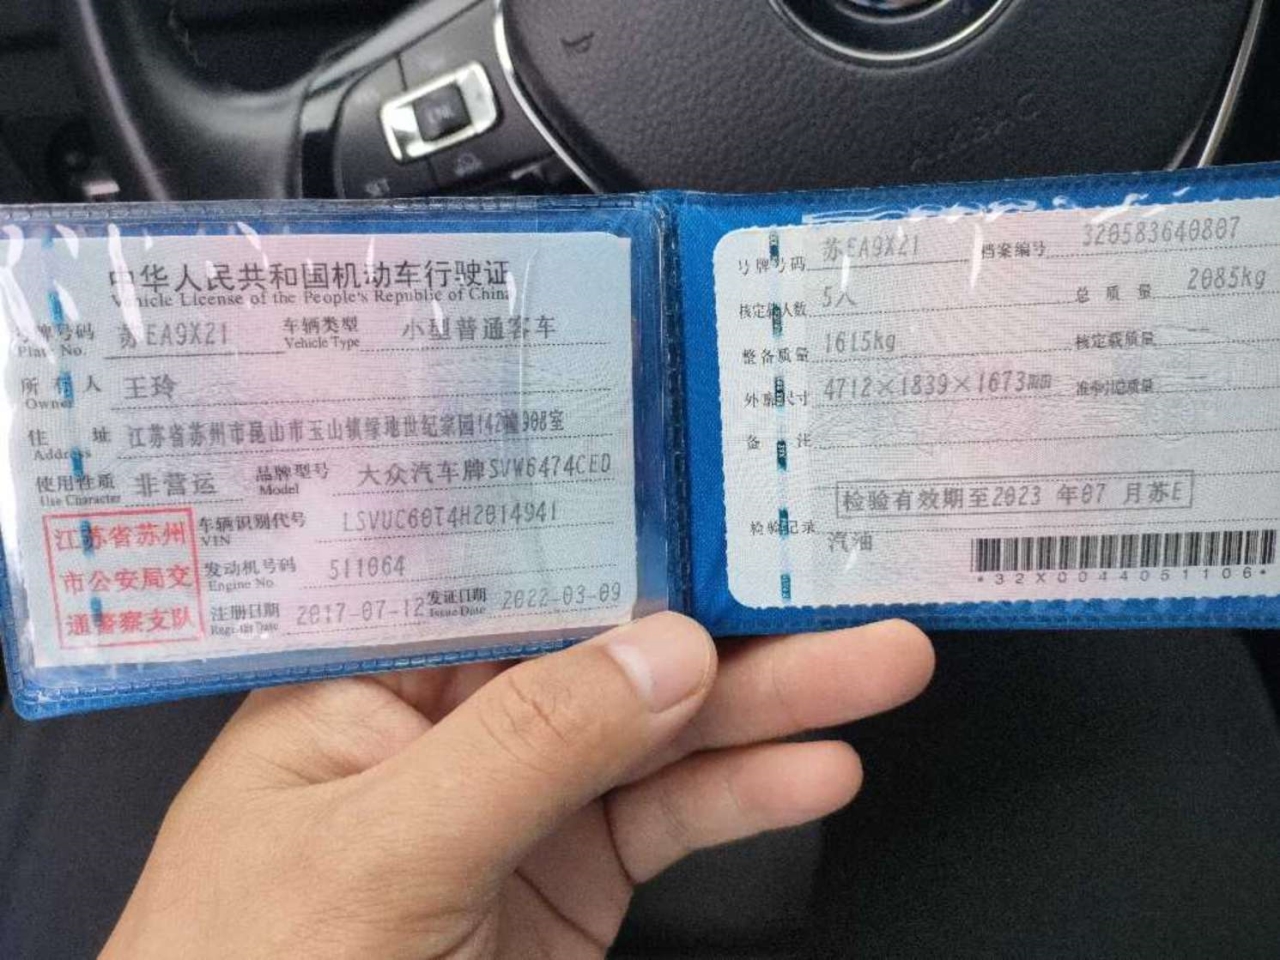 中华人民共和国机动车行驶证
Vehicle License of the People's Republic of China
号牌号码 苏EA9X21 车辆类型 小型普通客车
Plate No. Vehicle Type
所有人 王玲
Owner
住址 江苏省苏州市昆山市玉山镇绿地世纪家园142幢908室
Address
使用性质 非营运 品牌型号 大众汽车牌SVW6474CED
Use Character Model
江苏省苏州
市公安局交
通警察支队
车辆识别代号 LSVUC60T4H2014941
VIN
发动机号码 511064
Engine No.
注册日期 2017-07-12 发证日期 2022-03-09
Register Date Issue Date
号牌号码 苏EA9X21 档案编号 320583640807
核定载人数 5人 总质量 2085kg
整备质量 1615kg 核定载质量
外廓尺寸 4712×1839×1673mm 准牵引总质量
备注
检验有效期至2023年07月苏E
检验记录
汽油
*32X0044051106*
SET